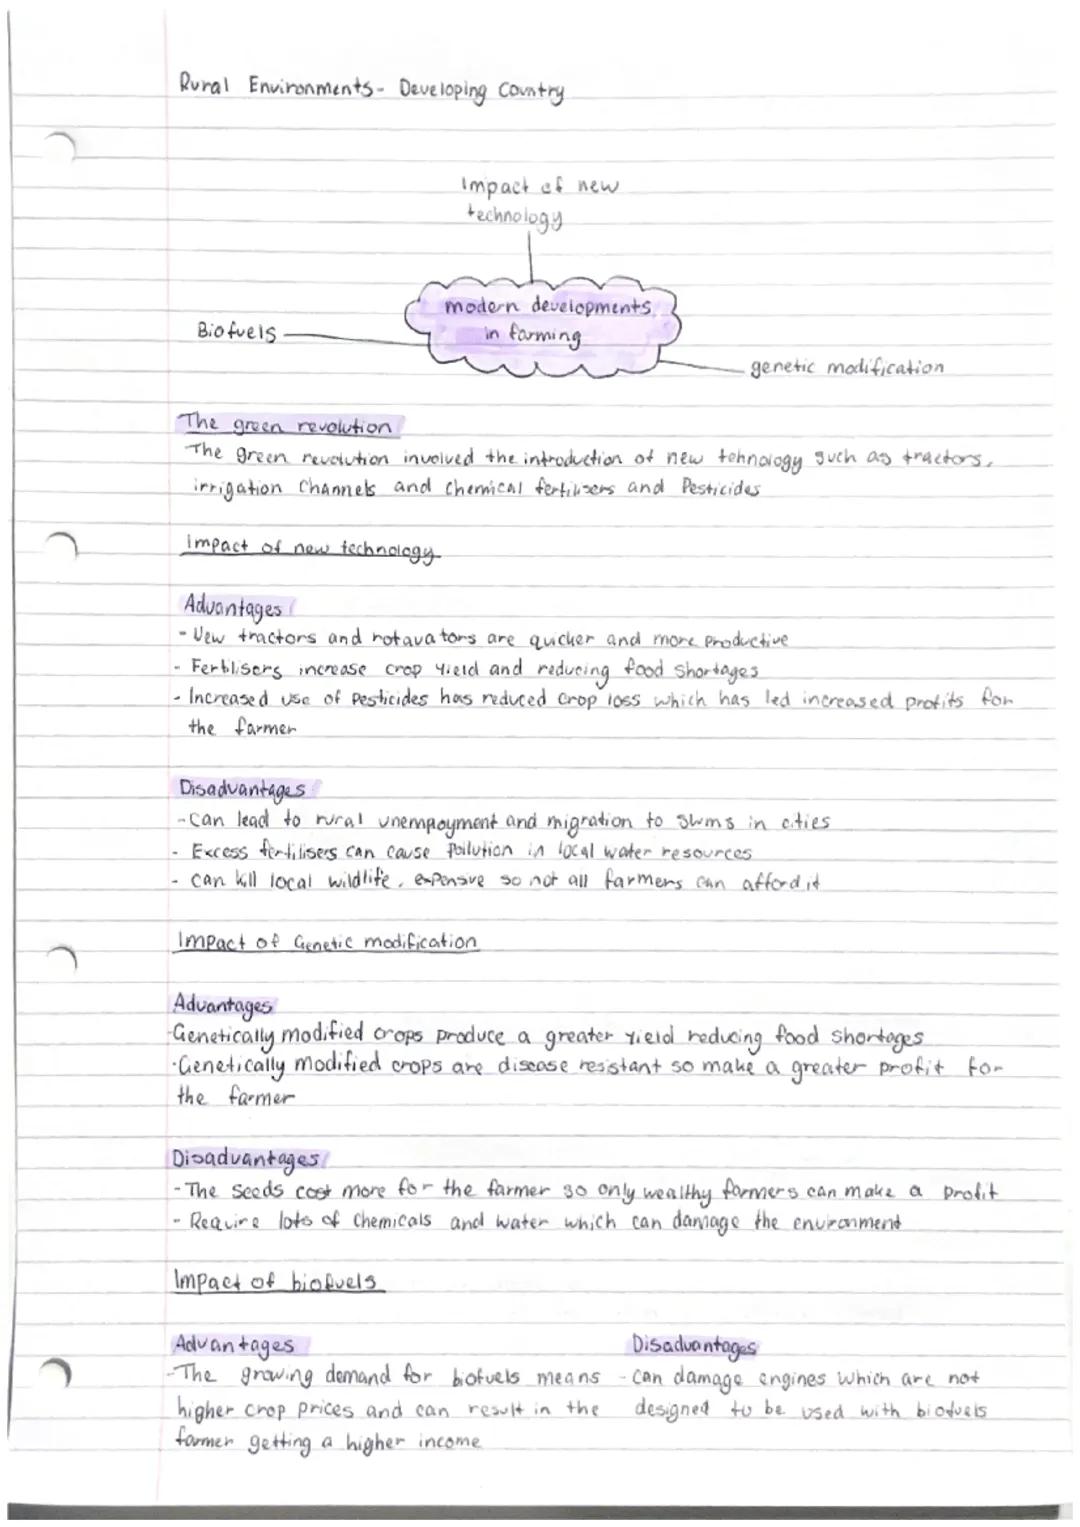 Rural Environments - Developing Country
Impact of new
technology
modern developments
in farming
Biofuels
genetic modification
The green revolution
The green revolution involved the introduction of new tehnology such as tractors,
irrigation Channels and Chemical fertilisers and Pesticides
Impact of new technology
Advantages
- New tractors and rotavators are quicker and more Productive
- Fertilisers increase crop Yield and reducing food shortages
- Increased use of Pesticides has reduced crop loss which has led increased profits for
the farmer
Disadvantages
- Can lead to rural unempoyment and migration to slums in cities
- Excess fertilisers can cause Pollution in local water resources
- can kill local wildlife, expensve so not all farmers can afford it
Impact of Genetic modification
Advantages
- Genetically modified crops produce a greater Yield reducing food shortages
- Genetically modified crops are disease resistant so make a greater profit for
the farmer
Disadvantages
- The seeds cost more for the farmer so only wealthy farmers can make a profit
- Require lots of Chemicals and water which can damage the environment
Impact of biofuels
Advantages
- The growing demand for biofuels means
higher crop prices and can result in the
farmer getting a higher income
Disadvantages
- Can damage engines which are not
designed to be used with biofuels